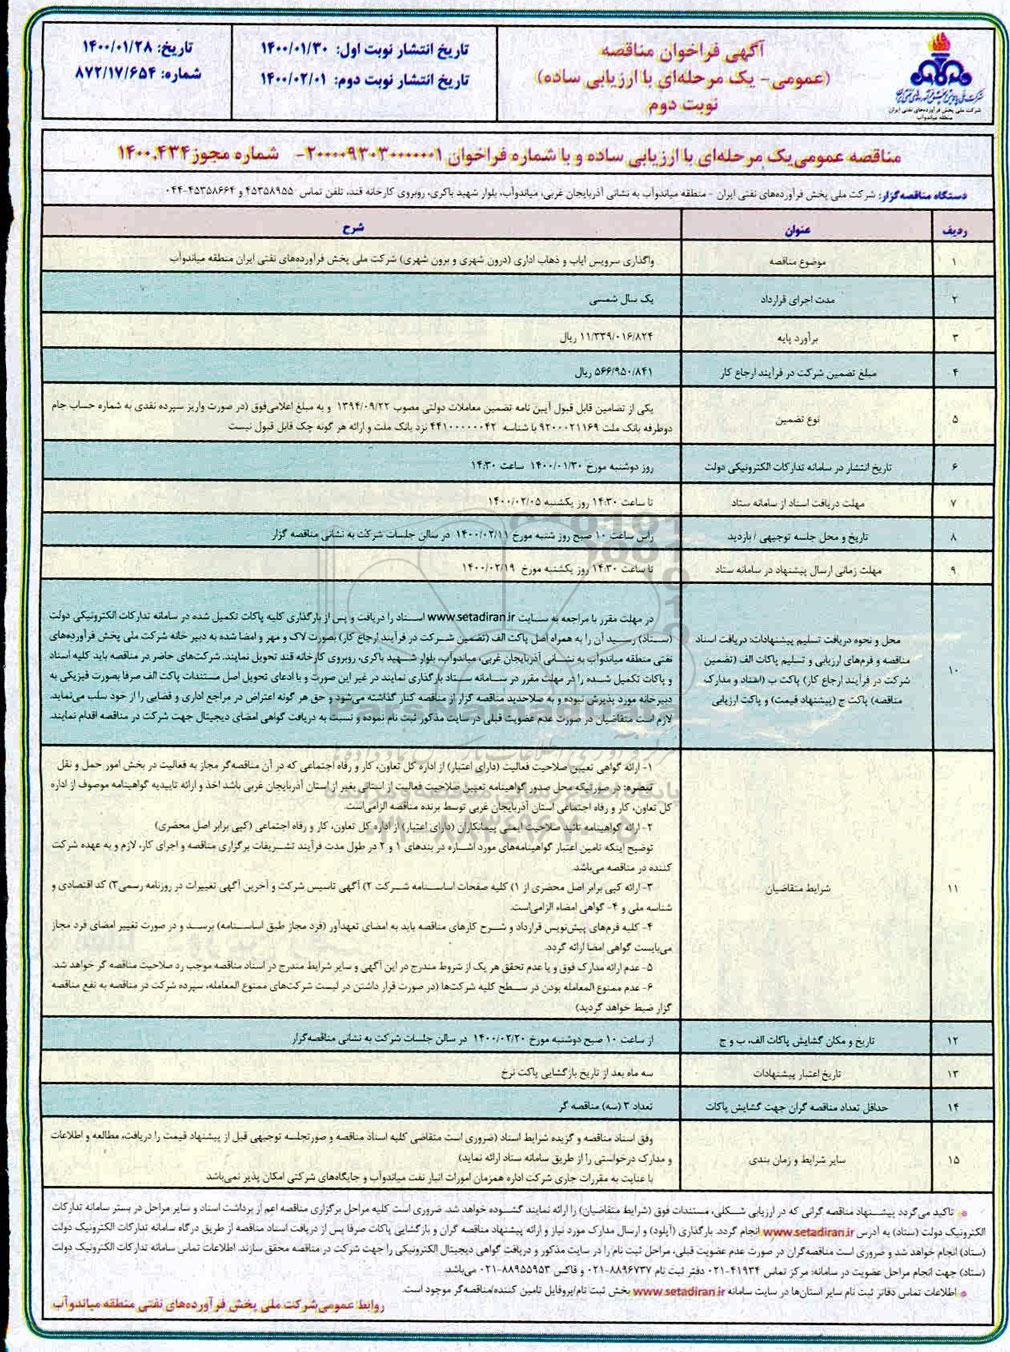 آگهی فراخوان مناقصه
(عمومی- یک مرحله‌ای با ارزیابی ساده)
نوبت دوم
تاریخ انتشار نوبت اول: ۱۴۰۰/۰۱/۳۰
تاریخ انتشار نوبت دوم: ۱۴۰۰/۰۲/۰۱
تاریخ: ۱۴۰۰/۰۱/۲۸
شماره: ۸۷۲/۱۷/۶۵۴
شرکت ملی پخش فرآورده‌های نفتی ایران
منطقه میاندوآب
مناقصه عمومی‌یک مرحله‌ای با ارزیابی ساده و با شماره فراخوان ۲۰۰۰۰۹۳۰۳۰۰۰۰۰۰۱- شماره مجوز۱۴۰۰.۴۳۴
دستگاه مناقصه‌گزار: شرکت ملی پخش فرآورده‌های نفتی ایران - منطقه میاندوآب به نشانی آذربایجان غربی، میاندوآب، بلوار شهید باکری، روبروی کارخانه قند، تلفن تماس ۴۵۳۵۸۹۵۵ و ۴۵۳۵۸۶۶۴-۰۴۴
ردیف عنوان شرح
۱ موضوع مناقصه واگذاری سرویس ایاب و ذهاب اداری (درون شهری و برون شهری) شرکت ملی پخش فرآورده‌های نفتی ایران منطقه میاندوآب
۲ مدت اجرای قرارداد یک سال شمسی
۳ برآورد پایه ۱۱/۳۳۹/۰۱۶/۸۲۴ ریال
۴ مبلغ تضمین شرکت در فرآیند ارجاع کار ۵۶۶/۹۵۰/۸۴۱ ریال
۵ نوع تضمین یکی از تضامین قابل قبول آیین نامه تضمین معاملات دولتی مصوب ۱۳۹۴/۰۹/۲۲ و به مبلغ اعلامی‌فوق (در صورت واریز سپرده نقدی به شماره حساب جام
دوطرفه بانک ملت ۹۲۰۰۰۲۱۱۶۹ با شناسه ۴۴۱۰۰۰۰۰۰۴۲ نزد بانک ملت و ارائه هر گونه چک قابل قبول نیست
۶ تاریخ انتشار در سامانه تدارکات الکترونیکی دولت روز دوشنبه مورخ ۱۴۰۰/۰۱/۳۰ ساعت ۱۴:۳۰
۷ مهلت دریافت اسناد از سامانه ستاد تا ساعت ۱۴:۳۰ روز یکشنبه ۱۴۰۰/۰۲/۰۵
۸ تاریخ و محل جلسه توجیهی / بازدید راس ساعت ۱۰ صبح روز شنبه مورخ ۱۴۰۰/۰۲/۱۱ در سالن جلسات شرکت به نشانی مناقصه گزار
۹ مهلت زمانی ارسال پیشنهاد در سامانه ستاد تا ساعت ۱۴:۳۰ روز یکشنبه مورخ ۱۴۰۰/۰۲/۱۹
۱۰ محل و نحوه دریافت تسلیم پیشنهادات: دریافت اسناد
مناقصه و فرم‌های ارزیابی و تسلیم پاکات الف (تضمین
شرکت در فرآیند ارجاع کار) پاکت ب (اسناد و مدارک
مناقصه) پاکت ج (پیشنهاد قیمت) و پاکت ارزیابی
در مهلت مقرر با مراجعه به سایت www.setadiran.ir اسناد را دریافت و پس از بارگذاری کلیه پاکات تکمیل شده در سامانه تدارکات الکترونیکی دولت
(ستاد) رسید آن را به همراه اصل پاکت الف (تضمین شرکت در فرآیند ارجاع کار) بصورت لاک و مهر و امضا شده به دبیر خانه شرکت ملی پخش فرآورده‌های
نفتی منطقه میاندوآب به نشانی آذربایجان غربی، میاندوآب، بلوار شهید باکری، روبروی کارخانه قند تحویل نمایند. شرکت‌های حاضر در مناقصه باید کلیه اسناد
و پاکات تکمیل شده را در مهلت مقرر در سامانه ستاد بارگذاری نمایند در غیر این صورت و با ادعای تحویل اصل مستندات پاکت الف صرفا بصورت فیزیکی به
دبیرخانه مورد پذیرش نبوده و به صلاحدید مناقصه گزار از مناقصه کنار گذاشته می‌شود و حق هر گونه اعتراض در مراجع اداری و قضایی را از خود سلب می‌نماید.
لازم است متقاضیان در صورت عدم عضویت قبلی در سایت مذکور ثبت نام نموده و نسبت به دریافت گواهی امضای دیجیتال جهت شرکت در مناقصه اقدام نمایند.
۱۱ شرایط متقاضیان
۱- ارائه گواهی تعیین صلاحیت فعالیت (دارای اعتبار) از اداره کل تعاون، کار و رفاه اجتماعی که در آن مناقصه‌گر مجاز به فعالیت در بخش امور حمل و نقل
تبصره: در صورتیکه محل صدور گواهینامه تعیین صلاحیت فعالیت از استانی بغیر از استان آذربایجان غربی باشد اخذ و ارائه تاییدیه گواهینامه موصوف از اداره
کل تعاون، کار و رفاه اجتماعی استان آذربایجان غربی توسط برنده مناقصه الزامی‌است.
۲- ارائه گواهینامه تائید صلاحیت ایمنی پیمانکاران (دارای اعتبار) از اداره کل تعاون، کار و رفاه اجتماعی (کپی برابر اصل محضری)
توضیح اینکه تامین اعتبار گواهینامه‌های مورد اشاره در بندهای ۱ و ۲ در طول مدت فرآیند تشریفات برگزاری مناقصه و اجرای کار، لازم و به عهده شرکت
کننده در مناقصه می‌باشد.
۳- ارائه کپی برابر اصل محضری از ۱) کلیه صفحات اساسنامه شرکت ۲) آگهی تاسیس شرکت و آخرین آگهی تغییرات در روزنامه رسمی۳) کد اقتصادی و
شناسه ملی و ۴- گواهی امضاء الزامی‌است.
۴- کلیه فرم‌های پیش‌نویس قرارداد و شرح کارهای مناقصه باید به امضای تعهدآور (فرد مجاز طبق اساسنامه) برسد و در صورت تغییر امضای فرد مجاز
می‌بایست گواهی امضا ارائه گردد.
۵- عدم ارائه مدارک فوق و یا عدم تحقق هر یک از شروط مندرج در این آگهی و سایر شرایط مندرج در اسناد مناقصه موجب رد صلاحیت مناقصه گر خواهد شد.
۶- عدم ممنوع المعامله بودن در سطح کلیه شرکت‌ها (در صورت قرار داشتن در لیست شرکت‌های ممنوع المعامله، سپرده شرکت در مناقصه به نفع مناقصه
گزار ضبط خواهد گردید)
۱۲ تاریخ و مکان گشایش پاکات الف، ب و ج از ساعت ۱۰ صبح دوشنبه مورخ ۱۴۰۰/۰۲/۲۰ در سالن جلسات شرکت به نشانی مناقصه‌گزار
۱۳ تاریخ اعتبار پیشنهادات سه ماه بعد از تاریخ بازگشایی پاکت نرخ
۱۴ حداقل تعداد مناقصه گران جهت گشایش پاکات تعداد ۳ (سه) مناقصه گر
۱۵ سایر شرایط و زمان بندی وفق اسناد مناقصه و گزیده شرایط اسناد (ضروری است متقاضی کلیه اسناد مناقصه و صورتجلسه توجیهی قبل از پیشنهاد قیمت را دریافت، مطالعه و اطلاعات
و مدارک درخواستی را از طریق سامانه ستاد ارائه نماید)
با عنایت به مقررات جاری شرکت اداره همزمان امورات انبار نفت میاندوآب و جایگاه‌های شرکتی امکان پذیر نمی‌باشد
تاکید می‌گردد پیشنهاد مناقصه گرانی که در ارزیابی شکلی، مستندات فوق (شرایط متقاضیان) را ارائه نمایند گشوده خواهد شد. ضروری است کلیه مراحل برگزاری مناقصه اعم از برداشت اسناد و سایر مراحل در بستر سامانه تدارکات
الکترونیک دولت (ستاد) به آدرس www.setadiran.ir انجام گردد. بارگذاری (آپلود) و ارسال مدارک مورد نیاز و ارائه پیشنهاد مناقصه گران و بازگشایی پاکات صرفا پس از دریافت اسناد مناقصه از طریق درگاه سامانه تدارکات الکترونیک دولت
(ستاد) انجام خواهد شد و ضروری است مناقصه‌گران در صورت عدم عضویت قبلی، مراحل ثبت نام را در سایت مذکور و دریافت گواهی دیجیتال الکترونیکی را جهت شرکت در مناقصه محقق سازند. اطلاعات تماس سامانه تدارکات الکترونیک دولت
(ستاد) جهت انجام مراحل عضویت در سامانه: مرکز تماس ۴۱۹۳۴-۰۲۱ دفتر ثبت نام ۸۸۹۶۷۳۷-۰۲۱ و فاکس ۸۸۹۵۵۹۵۳-۰۲۱ می‌باشد.
اطلاعات تماس دفاتر ثبت نام سایر استان‌ها در سایت سامانه www.setadiran.ir بخش ثبت نام/پروفایل تامین کننده/مناقصه‌گر موجود است.
روابط عمومی‌شرکت ملی پخش فرآورده‌های نفتی منطقه میاندوآب